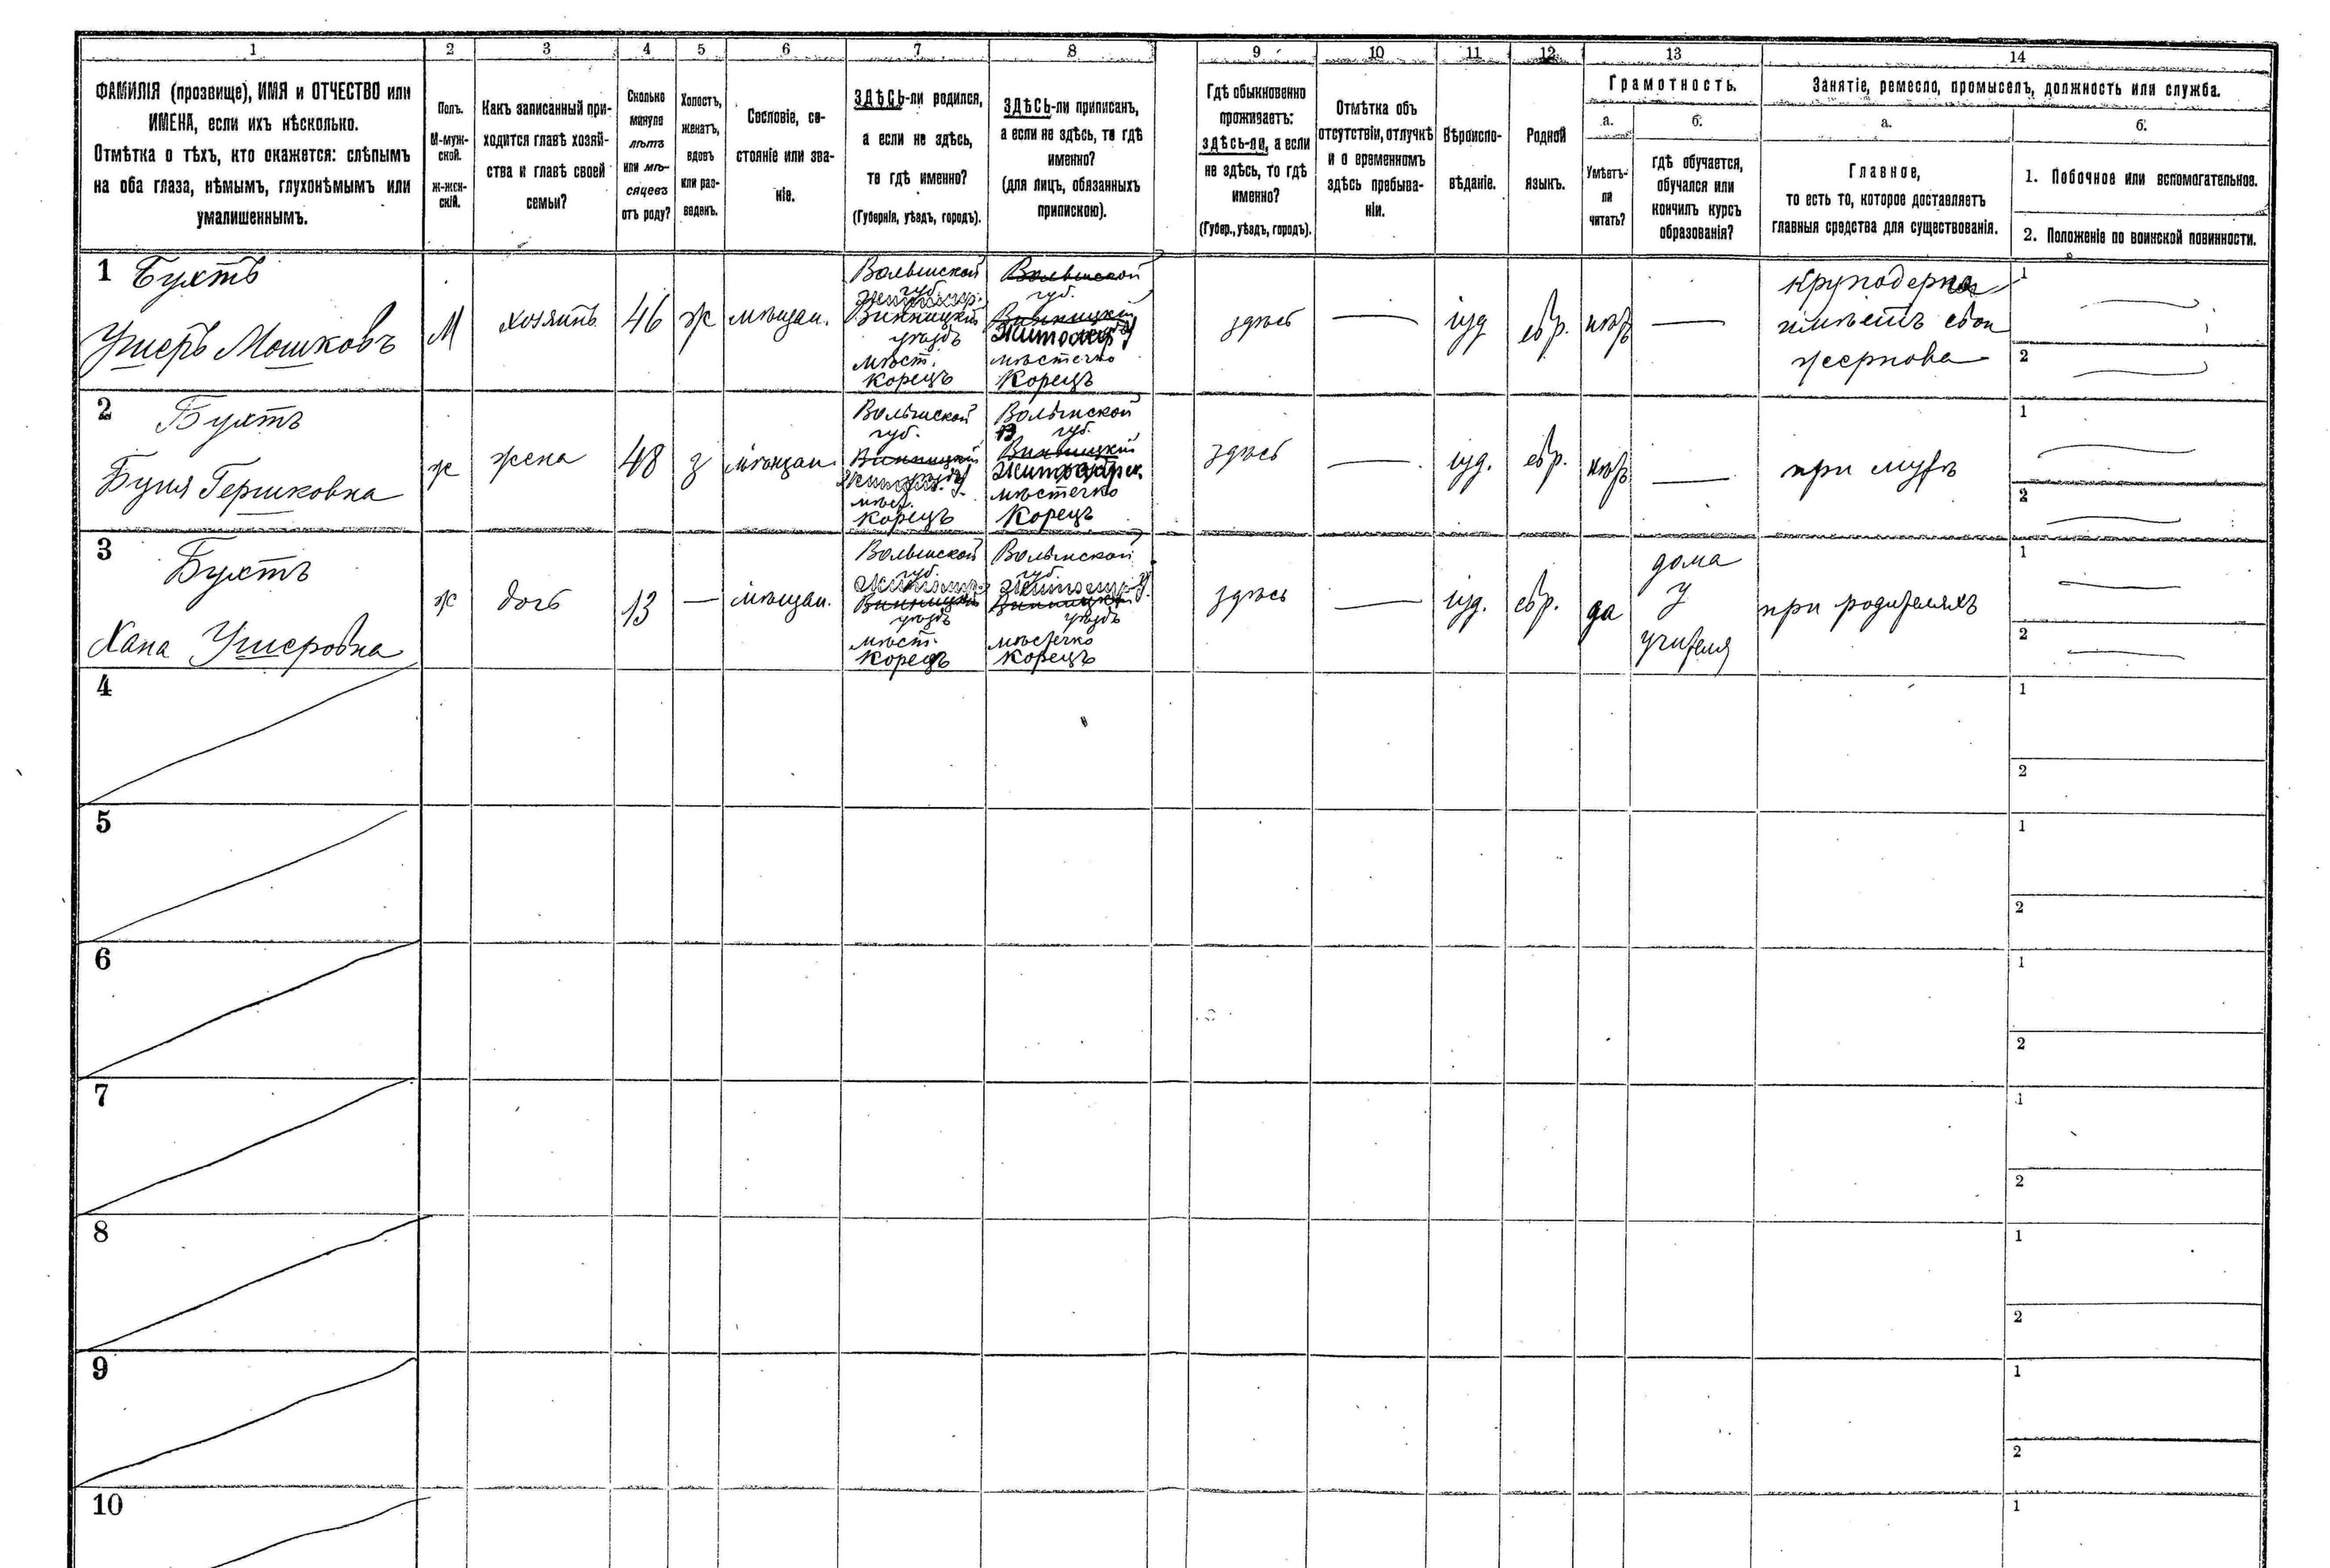 1
2
3
4
5
6
7
8
9
10
11
12
13
14
ФАМИЛІЯ (прозвище), ИМЯ и ОТЧЕСТВО или
ИМЕНА, если ихъ нѣсколько.
Отмѣтка о тѣхъ, кто окажется: слѣпымъ
на оба глаза, нѣмымъ, глухонѣмымъ или
умалишеннымъ.
Полъ.
М-муж-
ской.
Ж-жен-
скій.
Какъ записанный при-
ходится главѣ хозяй-
ства и главѣ своей
семьи?
Сколько
минуло
лѣтъ
или мѣ-
сяцевъ
отъ роду?
Холостъ,
женатъ,
вдовъ
или раз-
веденъ.
Сословіе, со-
стояніе или зва-
ніе.
ЗДѢСЬ-ли родился,
а если не здѣсь,
то гдѣ именно?
(Губернія, уѣздъ, городъ).
ЗДѢСЬ-ли приписанъ,
а если не здѣсь, то гдѣ
именно?
(для лицъ, обязанныхъ
припискою).
Гдѣ обыкновенно
проживаетъ:
здѣсь-ли, а если
не здѣсь, то гдѣ
именно?
(Губер., уѣздъ, городъ).
Отмѣтка объ
отсутствіи, отлучкѣ
и о временномъ
здѣсь пребыва-
ніи.
Вѣроиспо-
вѣданіе.
Родной
языкъ.
Грамотность.
а.
Умѣетъ-
ли
читать?
б.
гдѣ обучается,
обучался или
кончилъ курсъ
образованія?
Занятіе, ремесло, промыселъ, должность или служба.
а.
Главное,
то есть то, которое доставляетъ
главныя средства для существованія.
б.
1. Побочное или вспомогательное.
2. Положеніе по воинской повинности.
1 Бухтъ
Ушеръ Мошковъ
М
хозяинъ
46
ж
мѣщан.
Волынской
губ.
Винницкій
уѣздъ
мѣст.
Корецъ
Волынской
губ.
Винницкій
мѣстечко
Корецъ
здѣсь
іуд
евр.
нѣтъ
круподерня
имѣетъ свои
жернова
1
2
2 Бухтъ
Буня Гершковна
ж
жена
48
з
мѣщан.
Волынской
губ.
Винницкій
мѣст.
Корецъ
Волынской
губ.
Винницкій
мѣстечко
Корецъ
здѣсь
іуд.
евр.
нѣтъ
при мужѣ
1
2
3 Бухтъ
Хана Ушеровна
ж
дочь
13
мѣщан.
Волынской
губ.
Винницкій
уѣздъ
мѣст.
Корецъ
Волынской
губ.
Житомир. у.
Винницкій
уѣздъ
мѣстечко
Корецъ
здѣсь
іуд.
евр.
да
дома
у
учителя
при родителяхъ
1
2
4
1
2
5
1
2
6
1
2
7
1
2
8
1
2
9
1
2
10
1